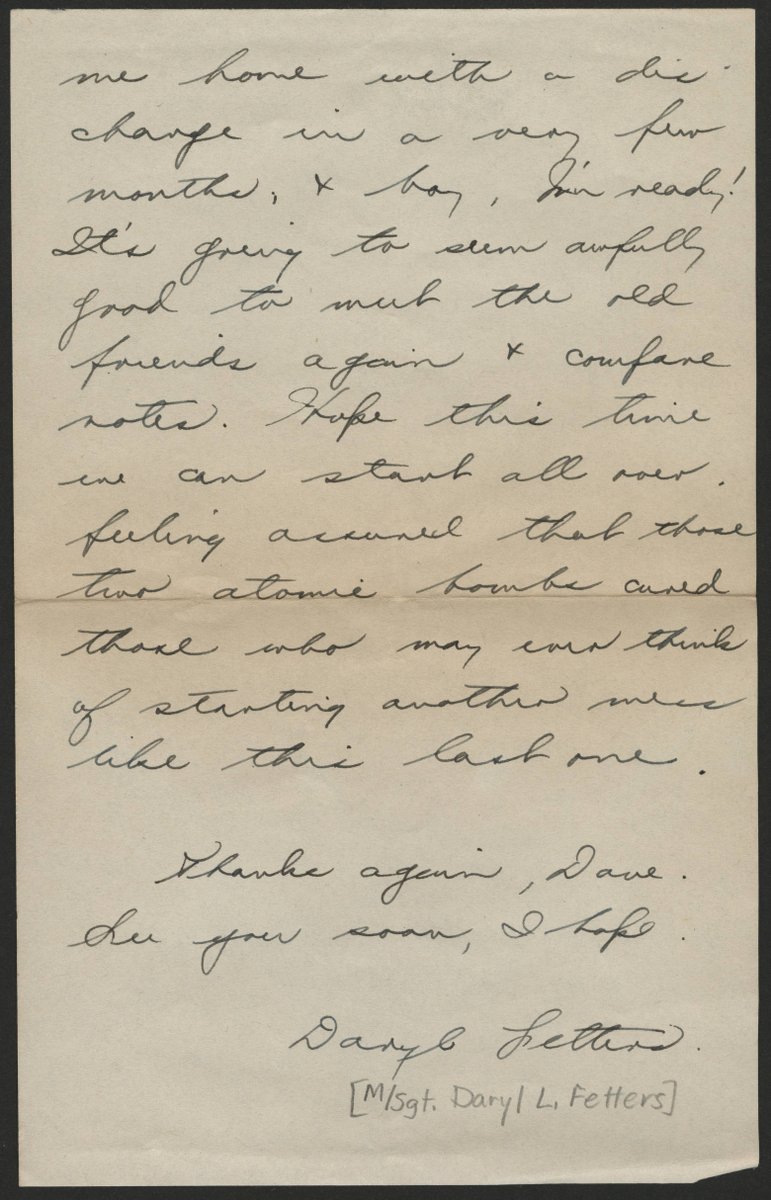 me home with a dis-
charge in a very few
months, & boy, I'm ready!
It's going to seem awfully
good to meet the old
friends again & compare
notes. Hope this time
we can start all over,
feeling assured that those
two atomic bombs cured
those who may ever think
of starting another mess
like this last one.
Thanks again, Dave.
See you soon, I hope.
Daryl Fetters.
[M/Sgt. Daryl L. Fetters]